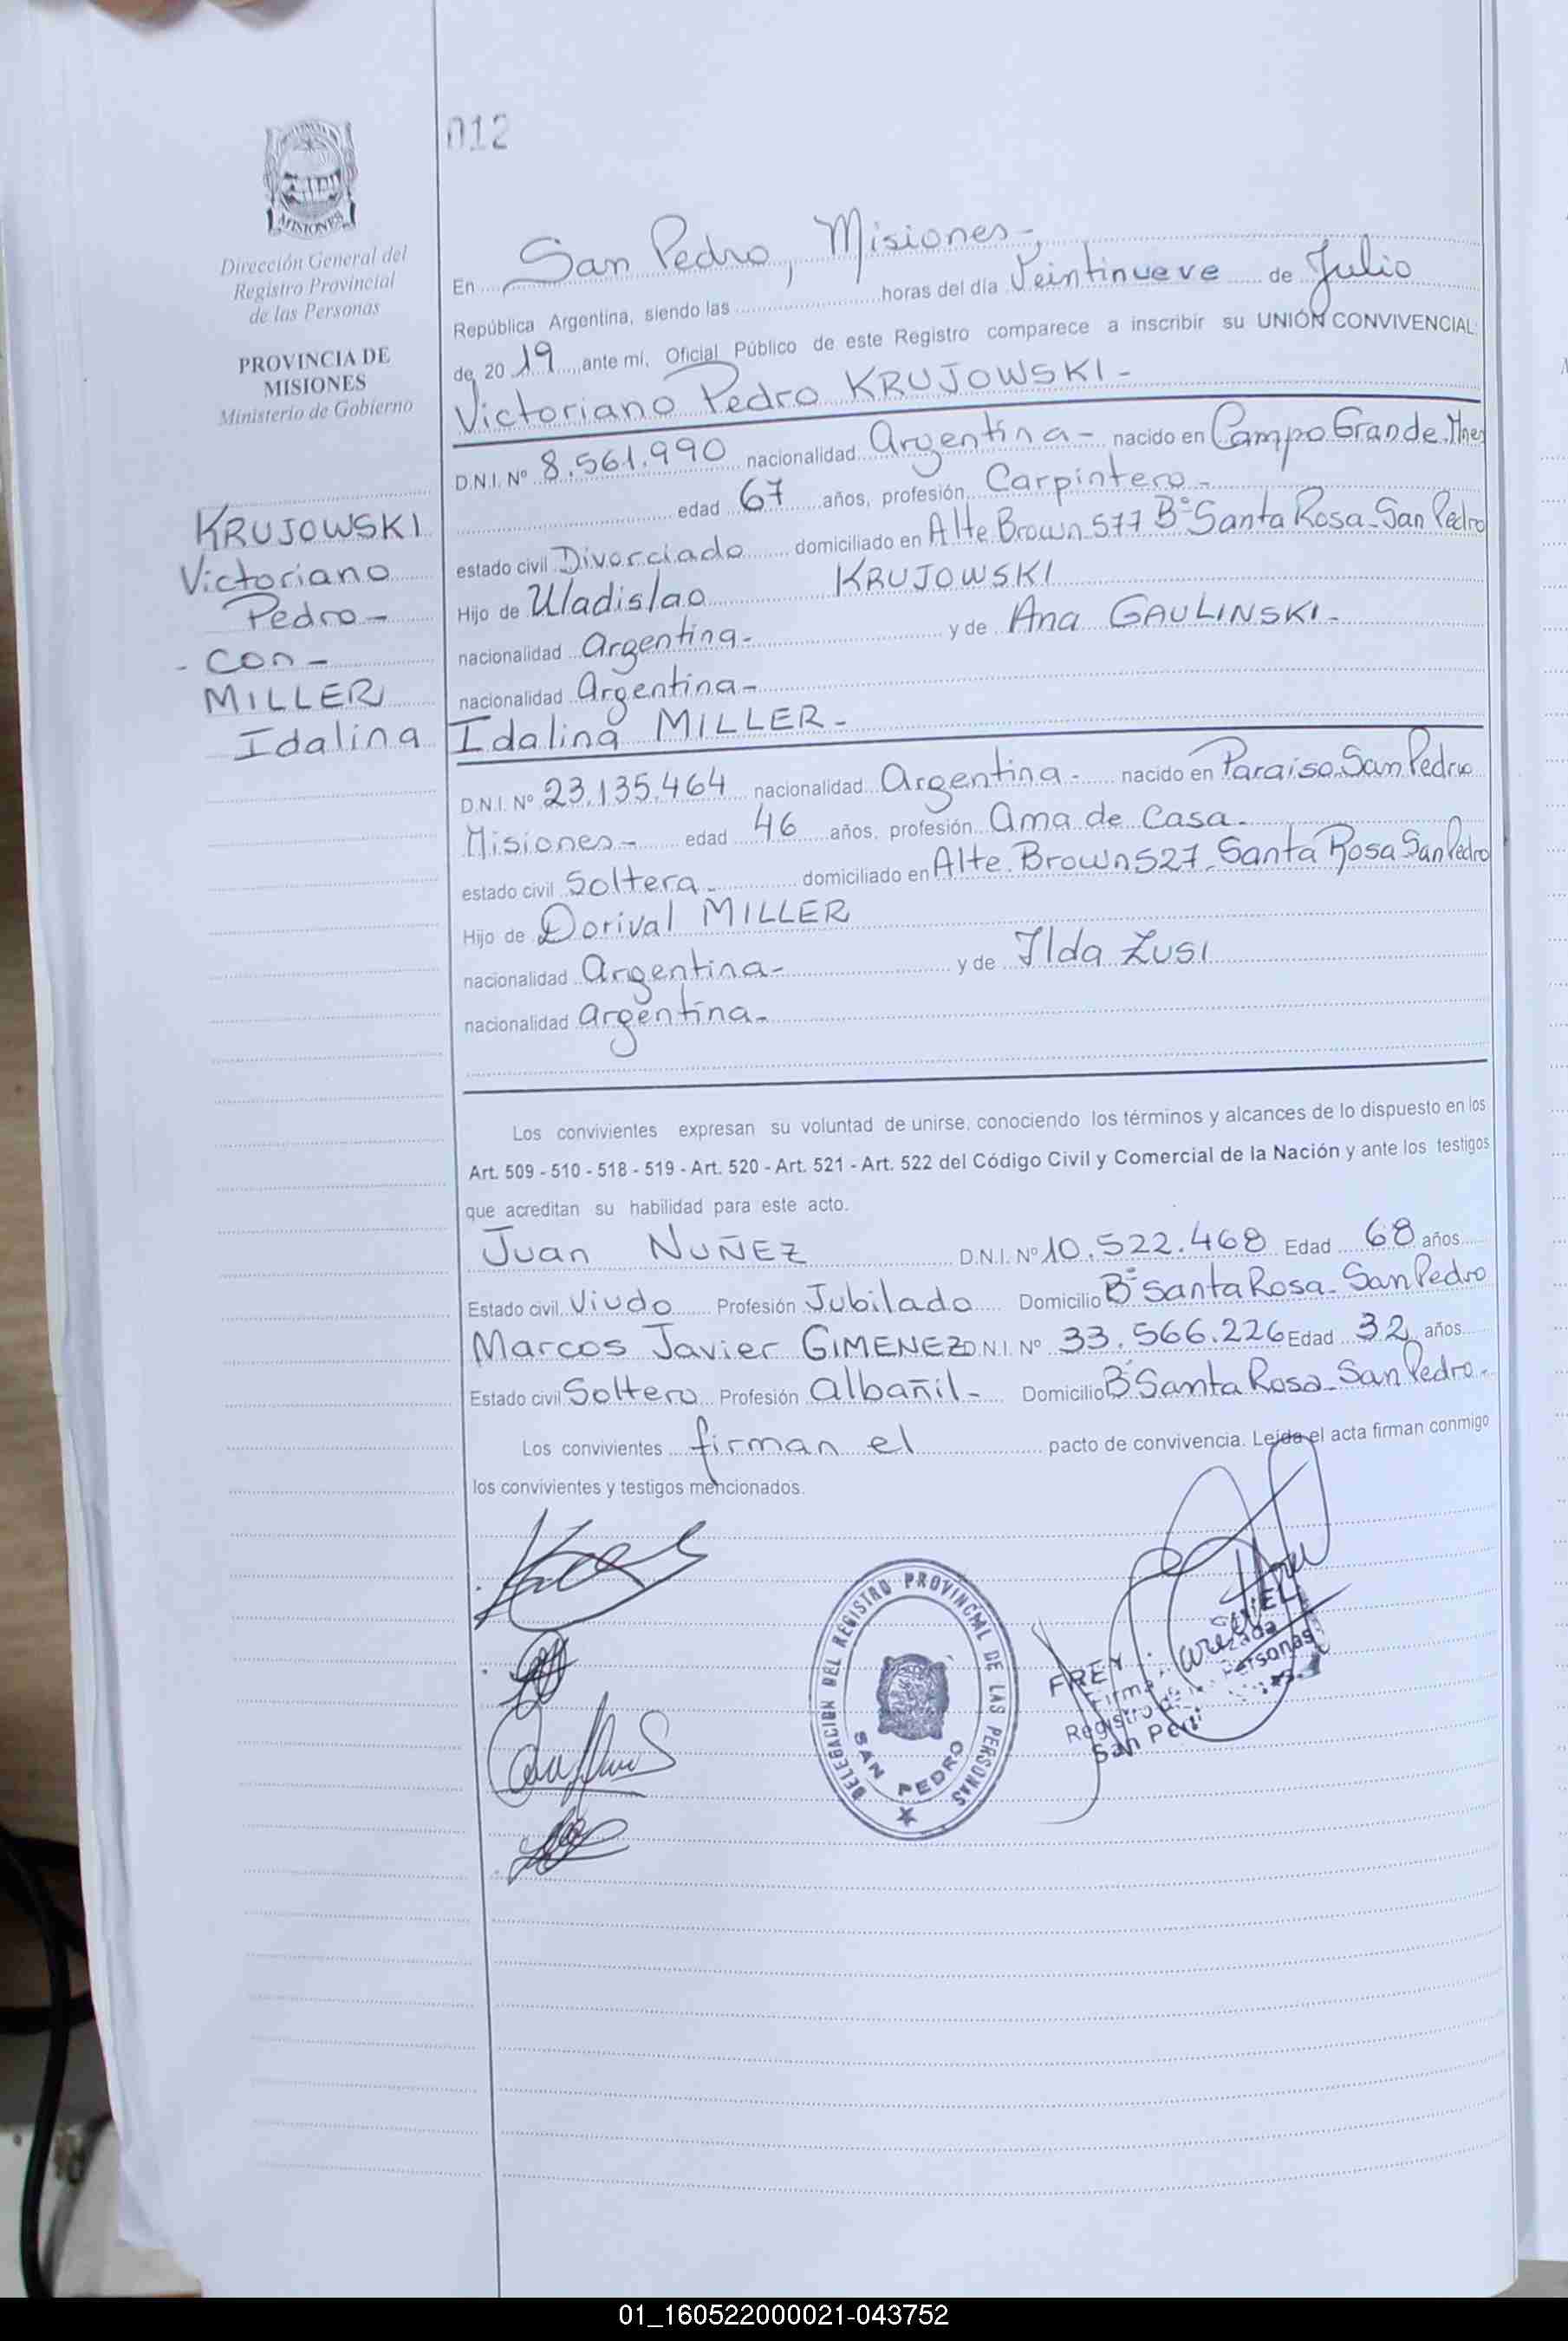 012
MISIONES
Dirección General del
Registro Provincial
de las Personas
PROVINCIA DE
MISIONES
Ministerio de Gobierno
KRUJOWSKI
Victoriano
Pedro -
- Con -
MILLER
Idalina
En San Pedro, Misiones -,
República Argentina, siendo las horas del día Veintinueve de Julio
de 2019 ante mí, Oficial Público de este Registro comparece a inscribir su UNIÓN CONVIVENCIAL:
Victoriano Pedro KRUJOWSKI -
D.N.I. Nº 8.561.990 nacionalidad Argentina - nacido en Campo Grande, Mnes
edad 67 años, profesión Carpintero -
estado civil Divorciado domiciliado en Alte Brown 577 Bº Santa Rosa - San Pedro
Hijo de Uladislao KRUJOWSKI
nacionalidad Argentina - y de Ana GAULINSKI -
nacionalidad Argentina -
Idalina MILLER -
D.N.I. Nº 23.135.464 nacionalidad Argentina - nacido en Paraiso San Pedro
Misiones - edad 46 años, profesión Ama de Casa -
estado civil Soltera - domiciliado en Alte. Brown 527 - Santa Rosa San Pedro
Hijo de Dorival MILLER
nacionalidad Argentina - y de Ilda ZUSI
nacionalidad Argentina -
Los convivientes expresan su voluntad de unirse, conociendo los términos y alcances de lo dispuesto en los
Art. 509 - 510 - 518 - 519 - Art. 520 - Art. 521 - Art. 522 del Código Civil y Comercial de la Nación y ante los testigos
que acreditan su habilidad para este acto.
Juan NUÑEZ D.N.I. Nº 10.522.468 Edad 68 años
Estado civil Viudo Profesión Jubilado Domicilio Bº Santa Rosa - San Pedro
Marcos Javier GIMENEZ D.N.I. Nº 33.566.226 Edad 32 años
Estado civil Soltero Profesión Albañil - Domicilio Bº Santa Rosa - San Pedro -
Los convivientes firman el pacto de convivencia. Leida el acta firman conmigo
los convivientes y testigos mencionados.
DELEGACION DEL REGISTRO PROVINCIAL DE LAS PERSONAS
SAN PEDRO
FREY
Firma
Registro de Personas
San Pedro
01_160522000021-043752